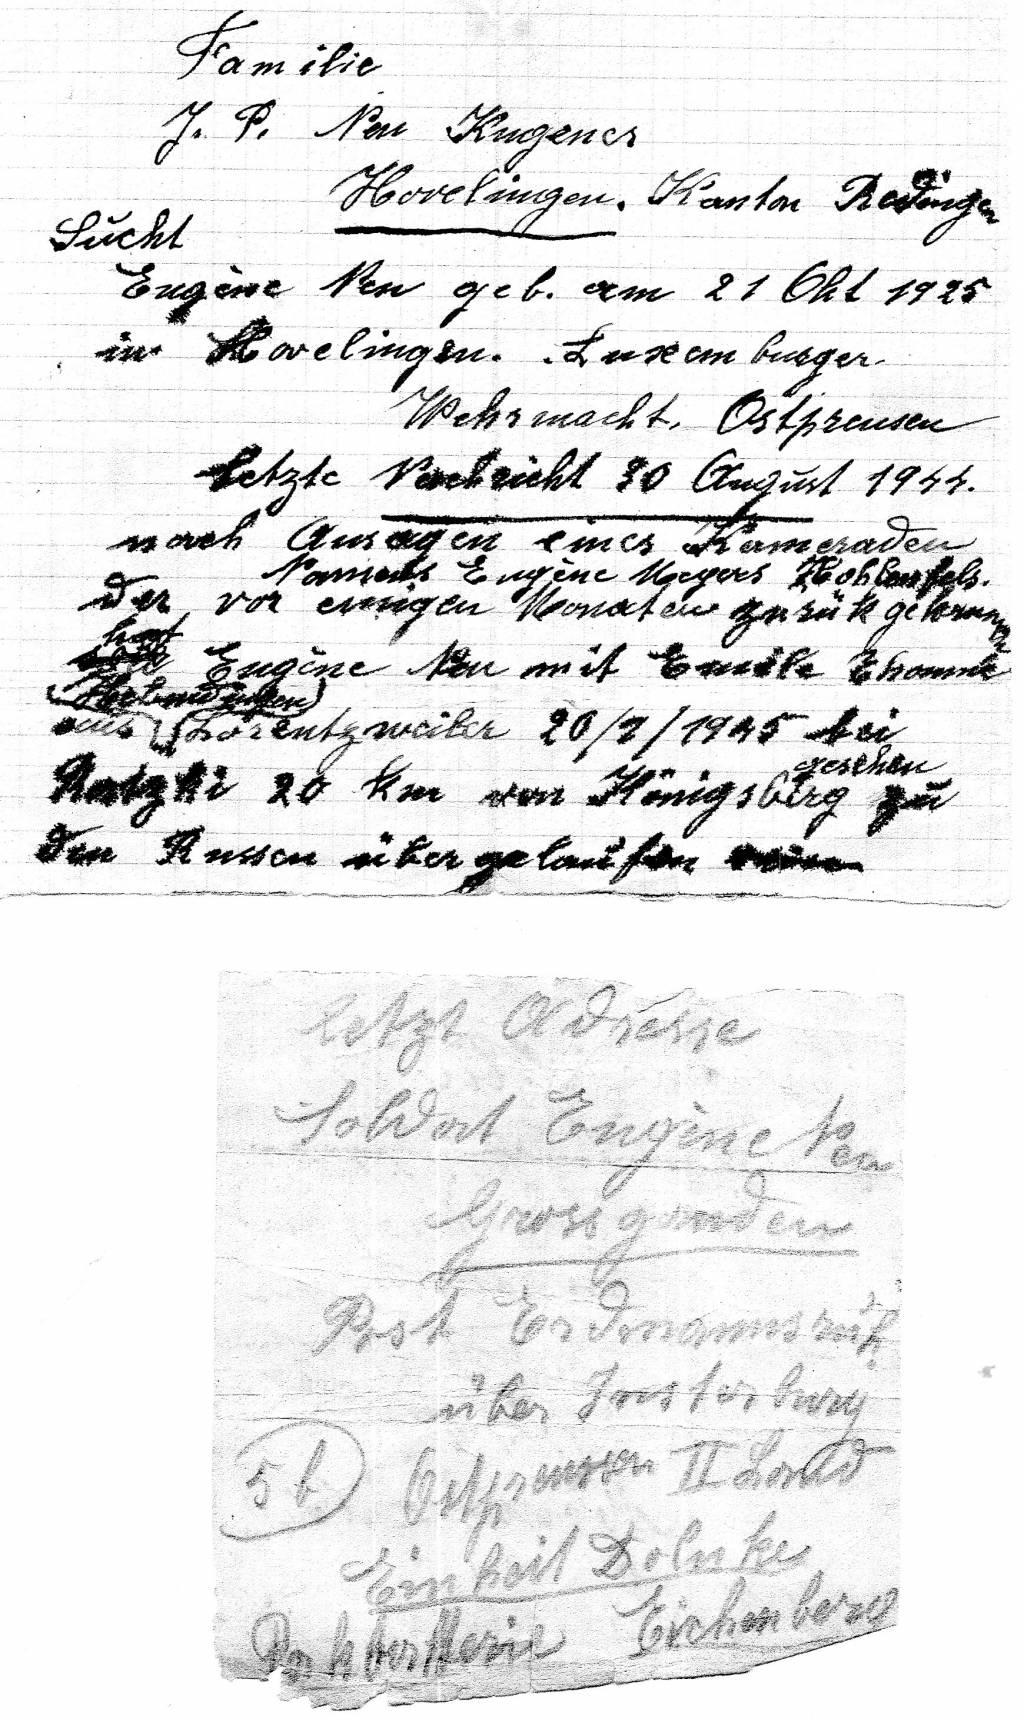 Familie
J. P. Neu Kugener
Hovelingen. Kanton Redingen
Sucht
Eugène Neu geb. am 21 Okt 1925
in Hovelingen. Luxemburger.
Wehrmacht. Ostpreusen
Letzte Nachricht 30 August 1944.
nach Aussagen eines Kameraden
Namens Eugène Meyers Hohlenfels.
der vor einigen Monaten zurük gekommen
hat Eugène Neu mit Emile Thomme
(Helmdingen)
aus (Lorentzweiler 20/2/1945 bei
gesehen
20 km von Königsberg zu
den Russen übergelaufen
Letzt Adresse
Soldat Eugène Neu
Grossgauden
Post Erdmannsruh
über Insterburg
5b Ostpreussen II Land
Einheit
Eichenberg